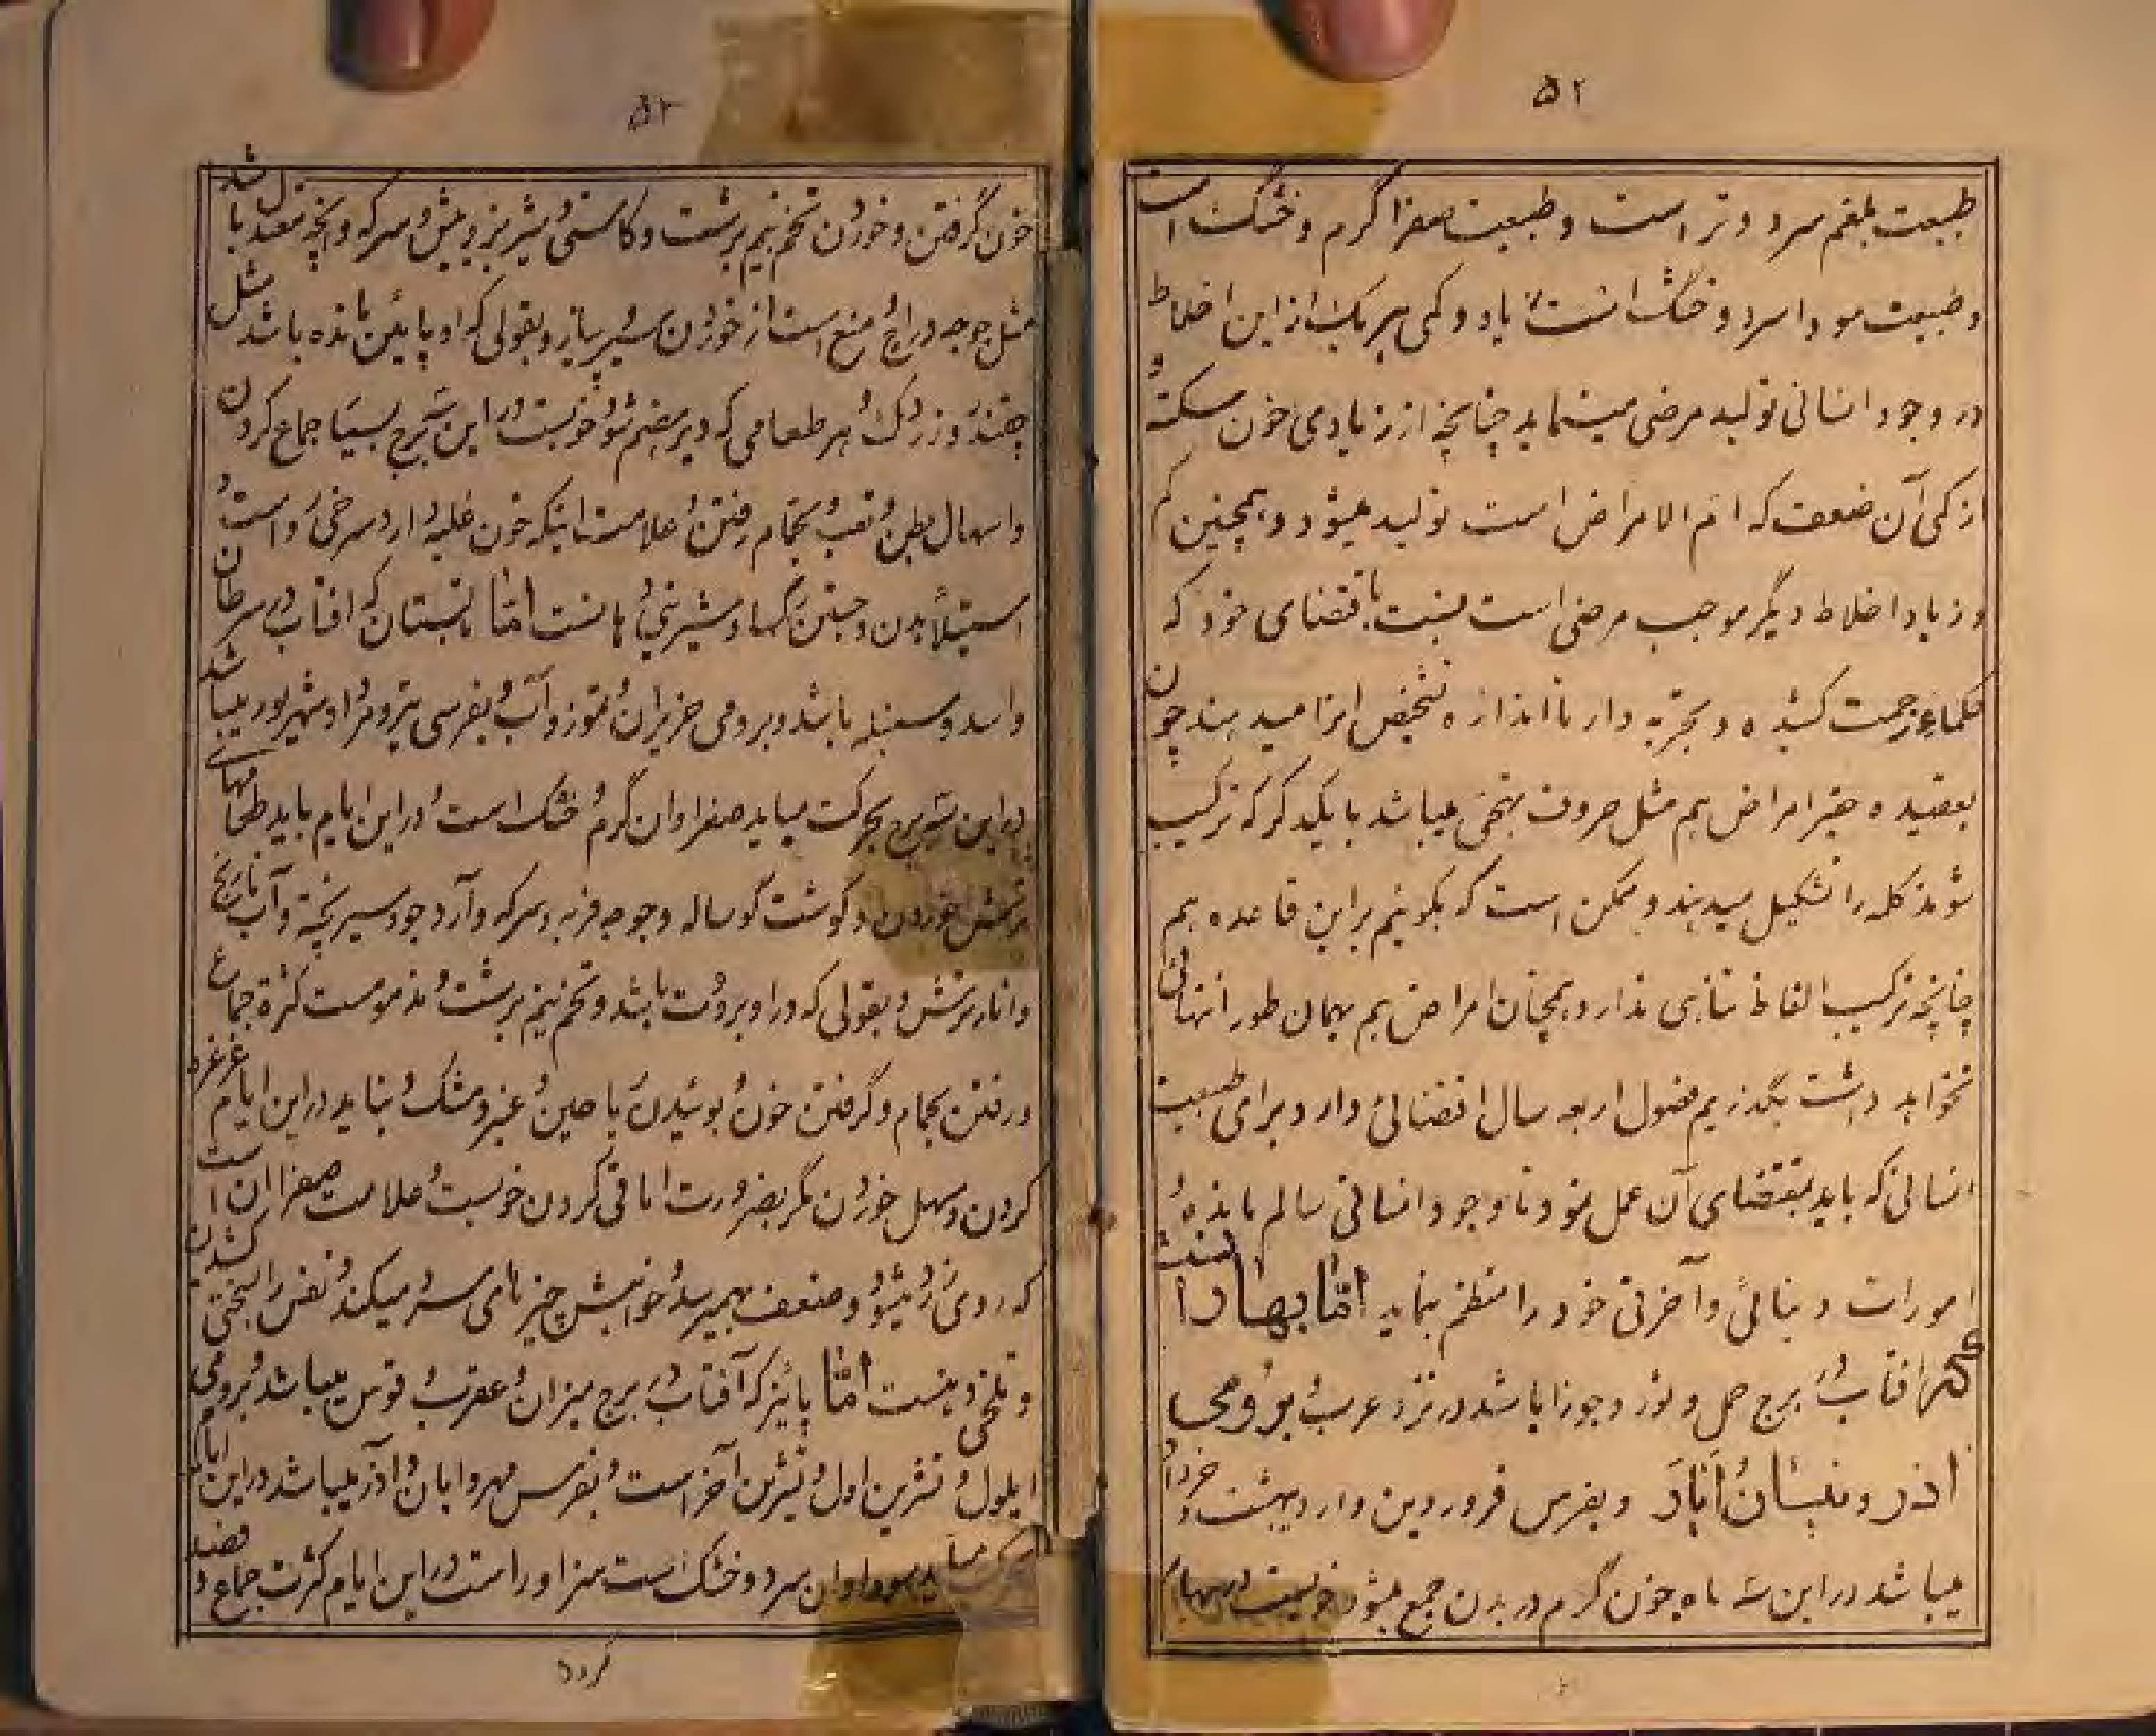 ۵۲
طبیعت بلغم سرد و تر است و طبیعت صفرا گرم و خشک است
و طبیعت سودا سرد و خشک است زیاد و کمی هر یک از این اخلاط
در وجود انسانی تولید مرضی مینماید چنانچه از زیادی خون سکته و
از کمی آن ضعف که ام الامراض است تولید میشود و همچنین کم
و زیاد اخلاط دیگر موجب مرضی است بنسبت باقتضای خود که
حکماء زحمت کشیده و تجربه دار تا اندازه تشخیص انرا میدهند چون
بعقیده حقیر امراض هم مثل حروف تهجی میباشد با یکدگر که ترکیب
شوند کله را تشکیل میدهند و ممکن است که بگوئیم بر این قاعده هم
چنانچه ترکیب الفاظ تناهی ندارد همچنان امراض هم بهمان طور انتهائی
نخواهد داشت بگذریم فصول اربعه سال اقتضائی دارد برای طبیعت
انسانی که باید بمقتضای آن عمل نمود تا وجود انسانی سالم مانده و
امورات دنیائی و آخرتی خود را منظم نماید امّا بهار
افتاب در برج حمل و ثور و جوزا باشد در نزد عرب و برومی
اذر و نیسان و ایار و بفرس فروردین و اردیبهشت و خرداد
میباشد در این سه ماه خون گرم در بدن جمع میشود خوبست
۵۳
خون گرفتن و خوردن تخم نیم برشت و کاسنی و شیر بز و میش و سرکه و آنچه معتدل باشد
مثل جوجه و دراج و منع است از خوردن سیر و پیاز و بقولی که او پایین مانده باشد مثل
چغندر و زردک و هر طعامی که دیر هضم شود و خوبست در این سه برج بسیار جماع کردن
و اسهال بطن و تعب و بحمام رفتن و علامت اینکه خون غلبه دارد سرخی رو است و
استیلأ بدن و جستن رگها و شیرینی دهانست امّا تابستان که افتاب در سرطان
و اسد و سنبله باشد و برومی حزیران و تموز و آب و بفرسی تیر و مرداد و شهریور میباشد
در این سه برج بحرکت میاید صفرا و ان گرم و خشک است و در این ایام باید طعامهای
ترش خوردن و گوشت گوساله و جوجه فربه و سرکه و آرد جو و سیر پخته و آب نارنج
و انار ترش و بقولی که در او برودت باشد و تخم نیم برشت و مذموم است کثرة جماع
و رفتن بحمام و گرفتن خون و بوئیدن یاحین و عنبر و مشک و نباید در این ایام غرغره
کردن و مسهل خوردن مگر بضرورت اما قی کردن خوبست و علامت صفرا ان است
که روی زرد میشود و ضعف بهمیرسد و خواهش چیزهای سرد میکند و نفس را بسختی کشیدن
و تلخی دهنست امّا پائیز که آفتاب در برج میزان و عقرب و قوس میباشد و برومی
ایلول و تشرین اول و تشرین آخر است و بفرس مهر و ابان و آذر میباشد در این ایام
میاید سودا و ان سرد و خشک است سزاوار است در این ایام کثرت جماع و فصد